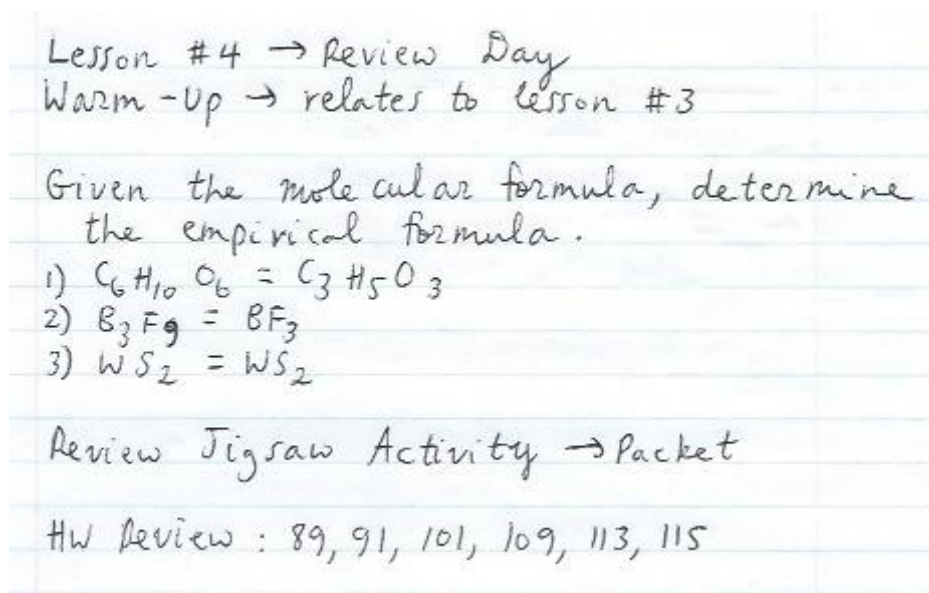 Lesson #4 → Review Day
Warm-Up → relates to lesson #3
Given the molecular formula, determine
the empirical formula.
1) C₆H₁₀O₆ = C₃H₅O₃
2) B₃F₉ = BF₃
3) WS₂ = WS₂
Review Jigsaw Activity → Packet
HW Review : 89, 91, 101, 109, 113, 115